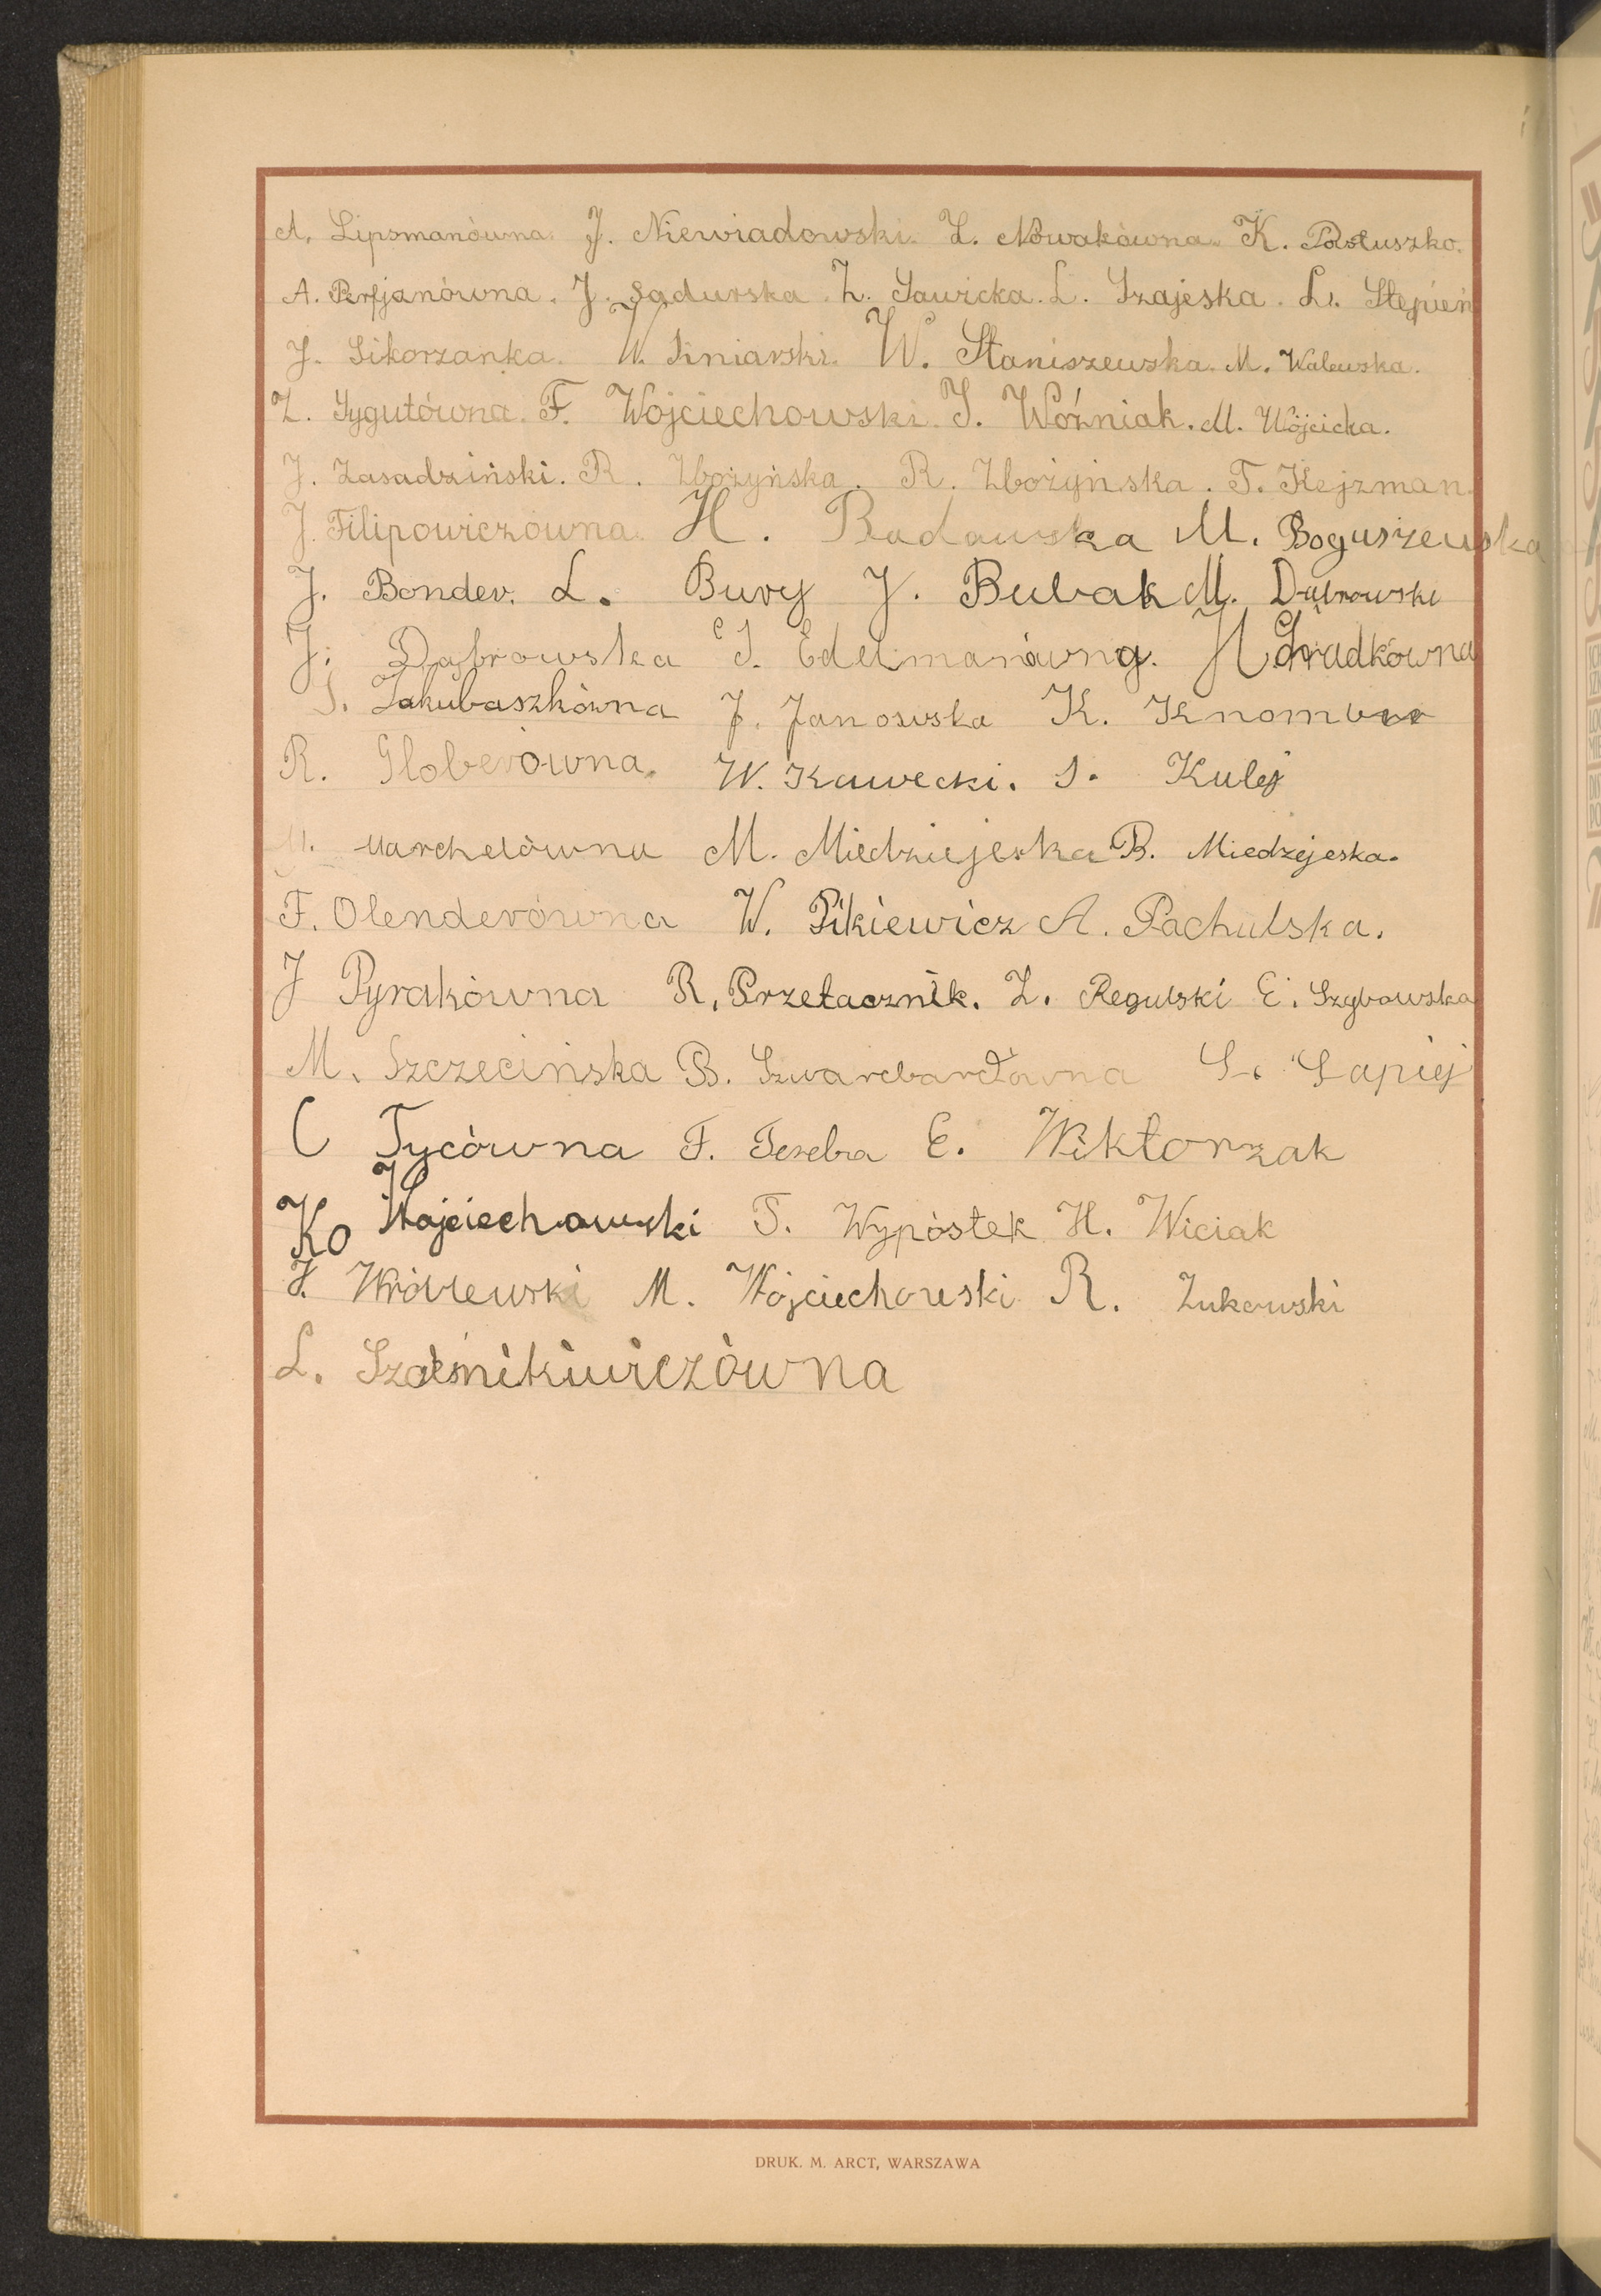 A. Lipsmanówna. J. Niewiadowski. Z. Nowakówna. K. Pastuszko.
A. Perfjanówna. J. Sadurska. Z. Sawicka. L. Szajeska. L. Stępień
J. Sikorzanka. W. Siniarski. W. Staniszewska. M. Walewska.
Z. Sygutówna. F. Wojciechowski. J. Woźniak. M. Wójcicka.
J. Zasadziński. R. Zbożyńska. R. Zbożyńska. T. Kejzman.
J. Filipowiczówna. H. Badawska M. Boguszewska
J. Bonder. L. Bury J. Bubak M. Dąbrowski
J. Dąbrowska S. Edelmanówna. H Gradkówna
S. Jakubaszkówna J. Janowska K.
R. Globerówna. W. Kawecki. S. Kulej
M. Marchelówna M. Miedziejeska B. Miedzejeska.
F. Olenderówna W. Pikiewicz A. Pachulska.
J Pyrakówna R. Przetacznik. Z. Regulski E. Szybowska
M. Szczecińska B. Szwarcbardówna S. Sapiej
C Tycówna F. Tereba E. Wiktorzak
Ko Wojciechowski T. Wypóstek H. Wiciak
J. Wróblewski M. Wojciechowski R. Zukowski
L.
DRUK. M. ARCT, WARSZAWA